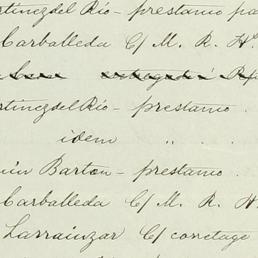 rtinez del Río - prestamo pa
Carballeda C/ M. R. H.
rtinez del Río - préstamo .
idem " "
uin Barton - prestamo .
Carballeda C/ M. R. H
Larrainzar C/ corretage